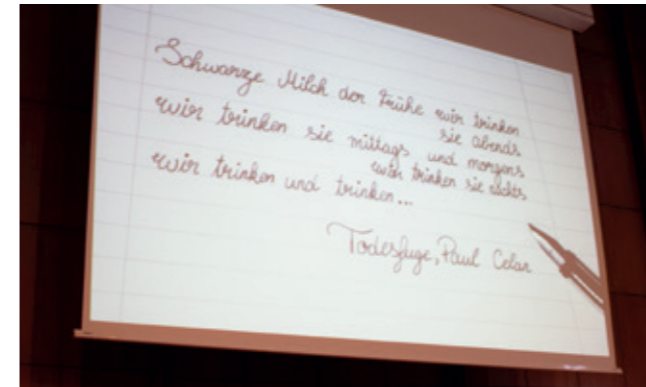 Schwarze Milch der Frühe wir trinken
sie abends
wir trinken sie mittags und morgens
wir trinken sie nachts
wir trinken und trinken...
Todesfuge, Paul Celan